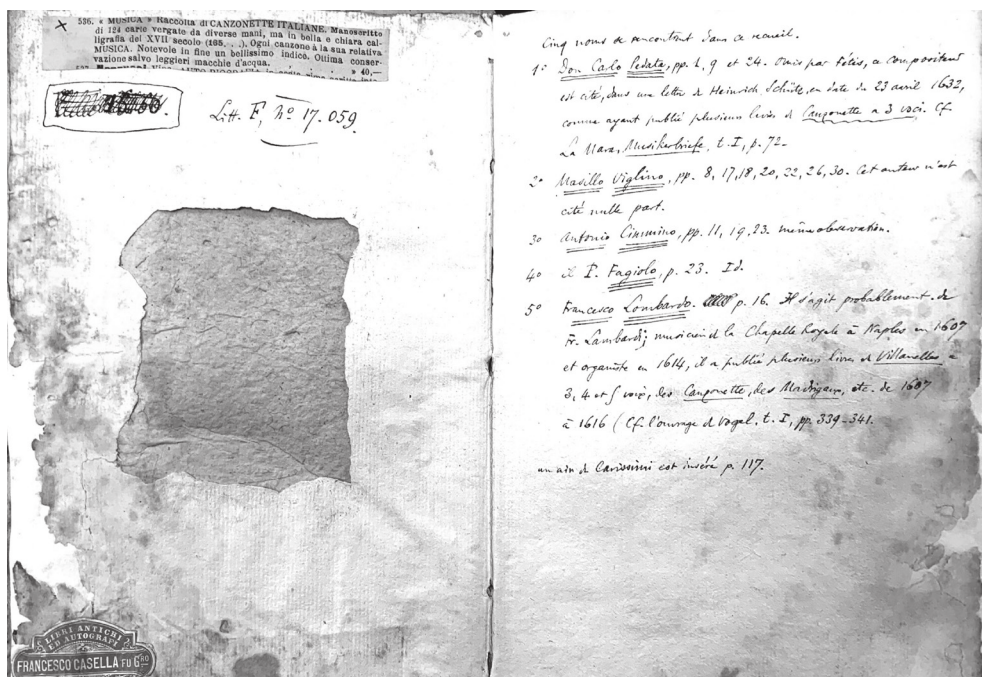 536. « MUSICA » Raccolta di CANZONETTE ITALIANE. Manoscritto
di 124 carte vergate da diverse mani, ma in bella e chiara cal-
ligrafia del XVII secolo (165. . .). Ogni canzone à la sua relativa
MUSICA. Notevole in fine un bellissimo indice. Ottima conser-
vazione salvo leggieri macchie d'acqua. » 40,—
Litt. F, No 17.059.
LIBRI ANTICHI
ED AUTOGRAFI
FRANCESCO CASELLA FU G.RO
Cinq noms se rencontrent dans ce recueil.
1o Don Carlo Pedata, pp. 1, 9 et 24. Omis par Fétis, ce compositeur
est cité, dans une lettre de Heinrich Schütz, en date du 23 avril 1632,
comme ayant publié plusieurs livres de Canzonette a 3 voci. Cf.
La Mara, Musikerbriefe, t. I, p. 72.
2o Masillo Viglino, pp. 8, 17, 18, 20, 22, 26, 30. Cet auteur n'est
cité nulle part.
3o Antonio Cimmino, pp. 11, 19, 23. même observation.
4o il P. Fagiolo, p. 23. Id.
5o Francesco Lombardo. p. 16. Il s'agit probablement de
Fr. Lambardi; musicien de la Chapelle Royale à Naples en 1607
et organiste en 1614, il a publié plusieurs livres de Villanelles à
3, 4 et 5 voix, des Canzonette, des Madrigaux, etc. de 1607
à 1616 (Cf. l'ouvrage de Vogel, t. I, pp. 339-341.
un air de Carissimi est inséré p. 117.